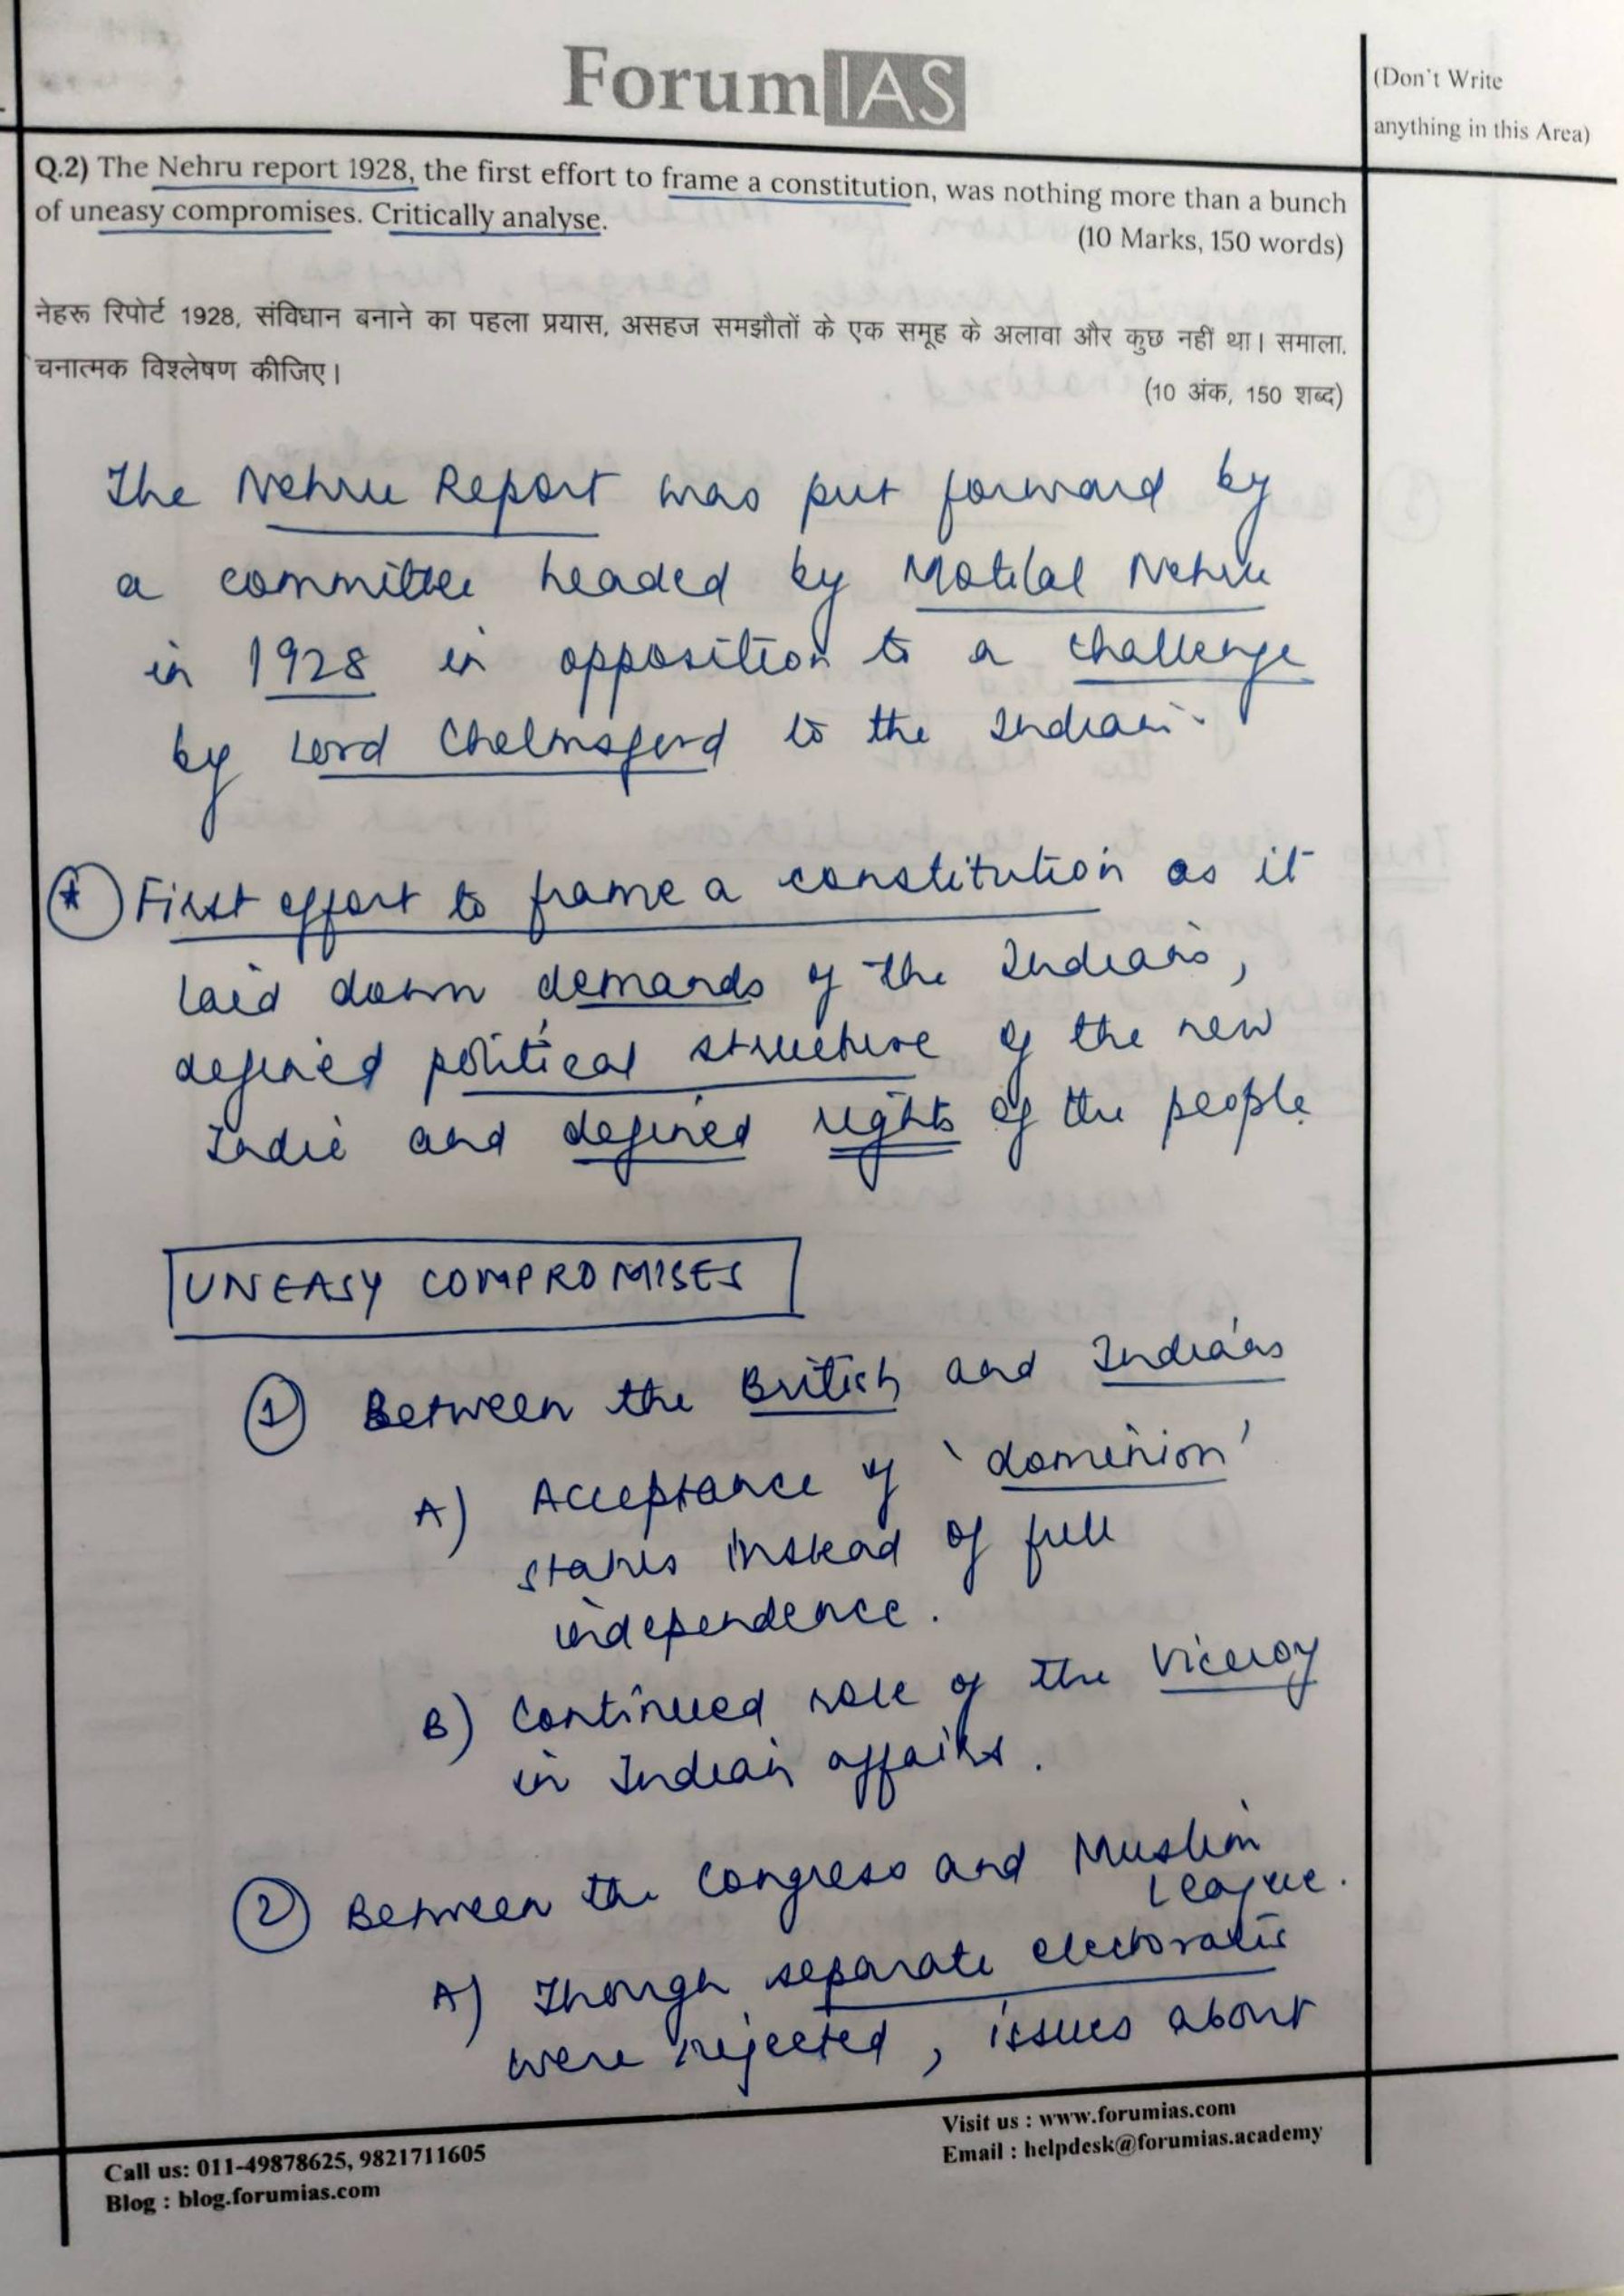 Forum IAS
(Don't Write
anything in this Area)
Q.2) The Nehru report 1928, the first effort to frame a constitution, was nothing more than a bunch
of uneasy compromises. Critically analyse.
(10 Marks, 150 words)
नेहरू रिपोर्ट 1928, संविधान बनाने का पहला प्रयास, असहज समझौतों के एक समूह के अलावा और कुछ नहीं था। समाला.
चनात्मक विश्लेषण कीजिए।
(10 अंक, 150 शब्द)
The Nehru Report was put forward by
a committee headed by Motilal Nehru
in 1928 in opposition to a challenge
by Lord Chelmsford to the Indians.
* First effort to frame a constitution as it
laid down demands of the Indians,
defined political structure of the new
India and defined rights of the people
UNEASY COMPROMISES
1 Between the British and Indians
A) Acceptance of 'dominion'
status instead of full
independence.
B) Continued role of the Viceroy
in Indian affairs.
2 Between the Congress and Muslim
League.
A) Though separate electorates
were rejected, issues about
Visit us : www.forumias.com
Email : helpdesk@forumias.academy
Call us: 011-49878625, 9821711605
Blog : blog.forumias.com